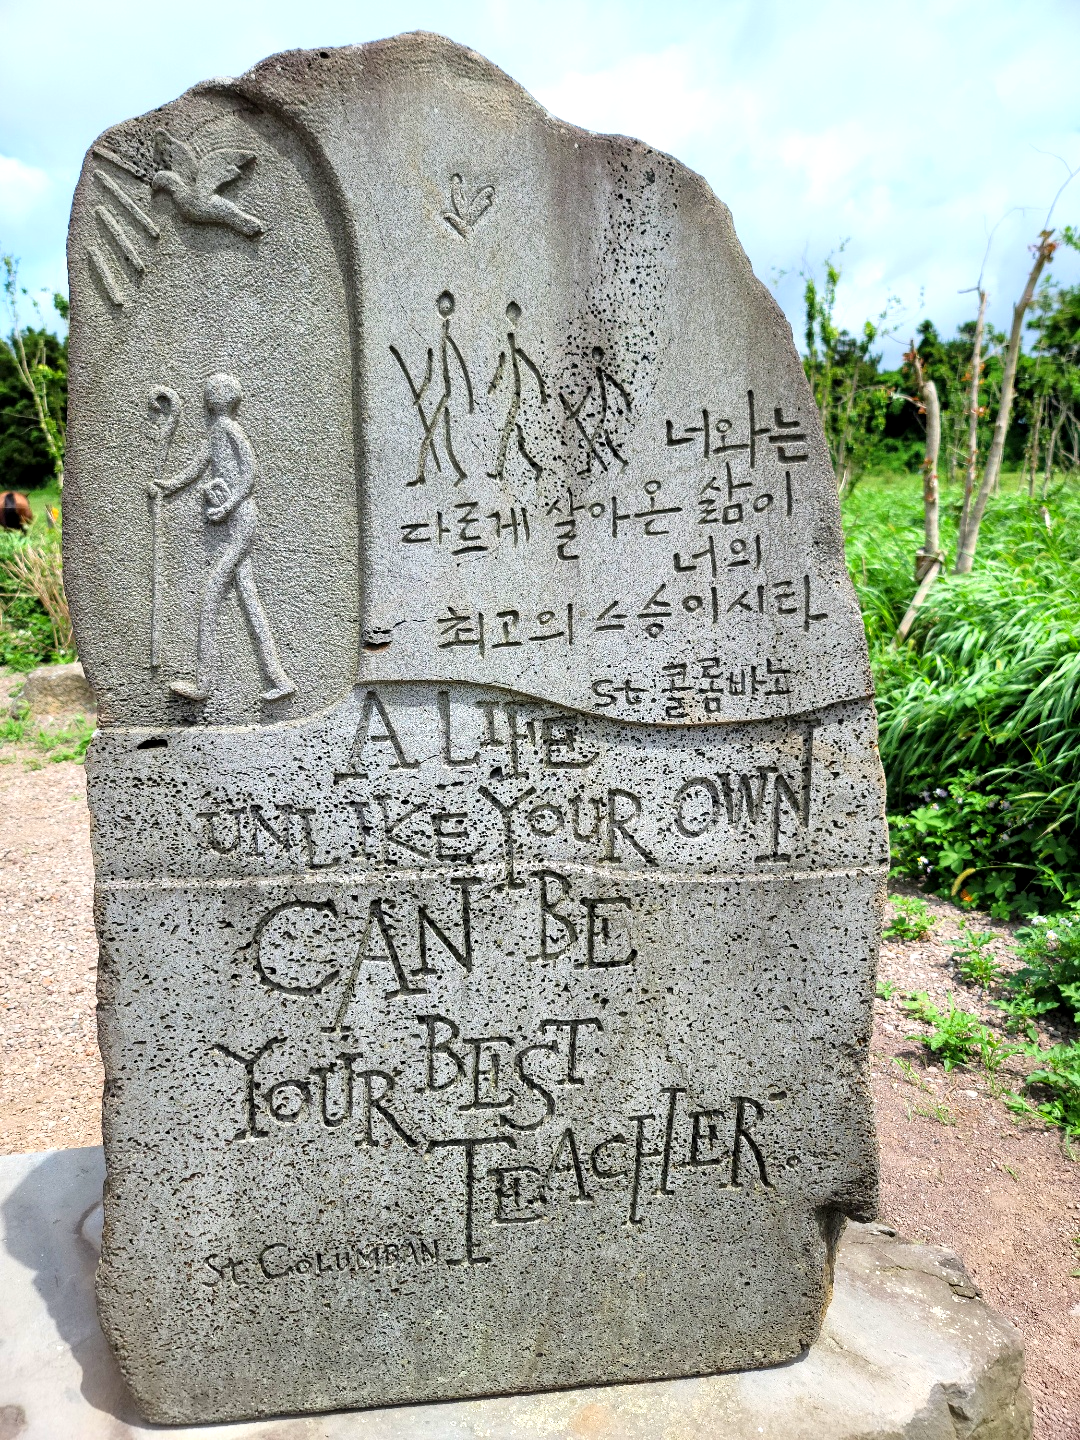 너와는
다르게 살아온 삶이
너의
최고의 스승이시타
St. 콜롬바노
A LIFE
UNLIKE YOUR OWN
CAN BE
YOUR BEST
TEACHER.
St COLUMBAN